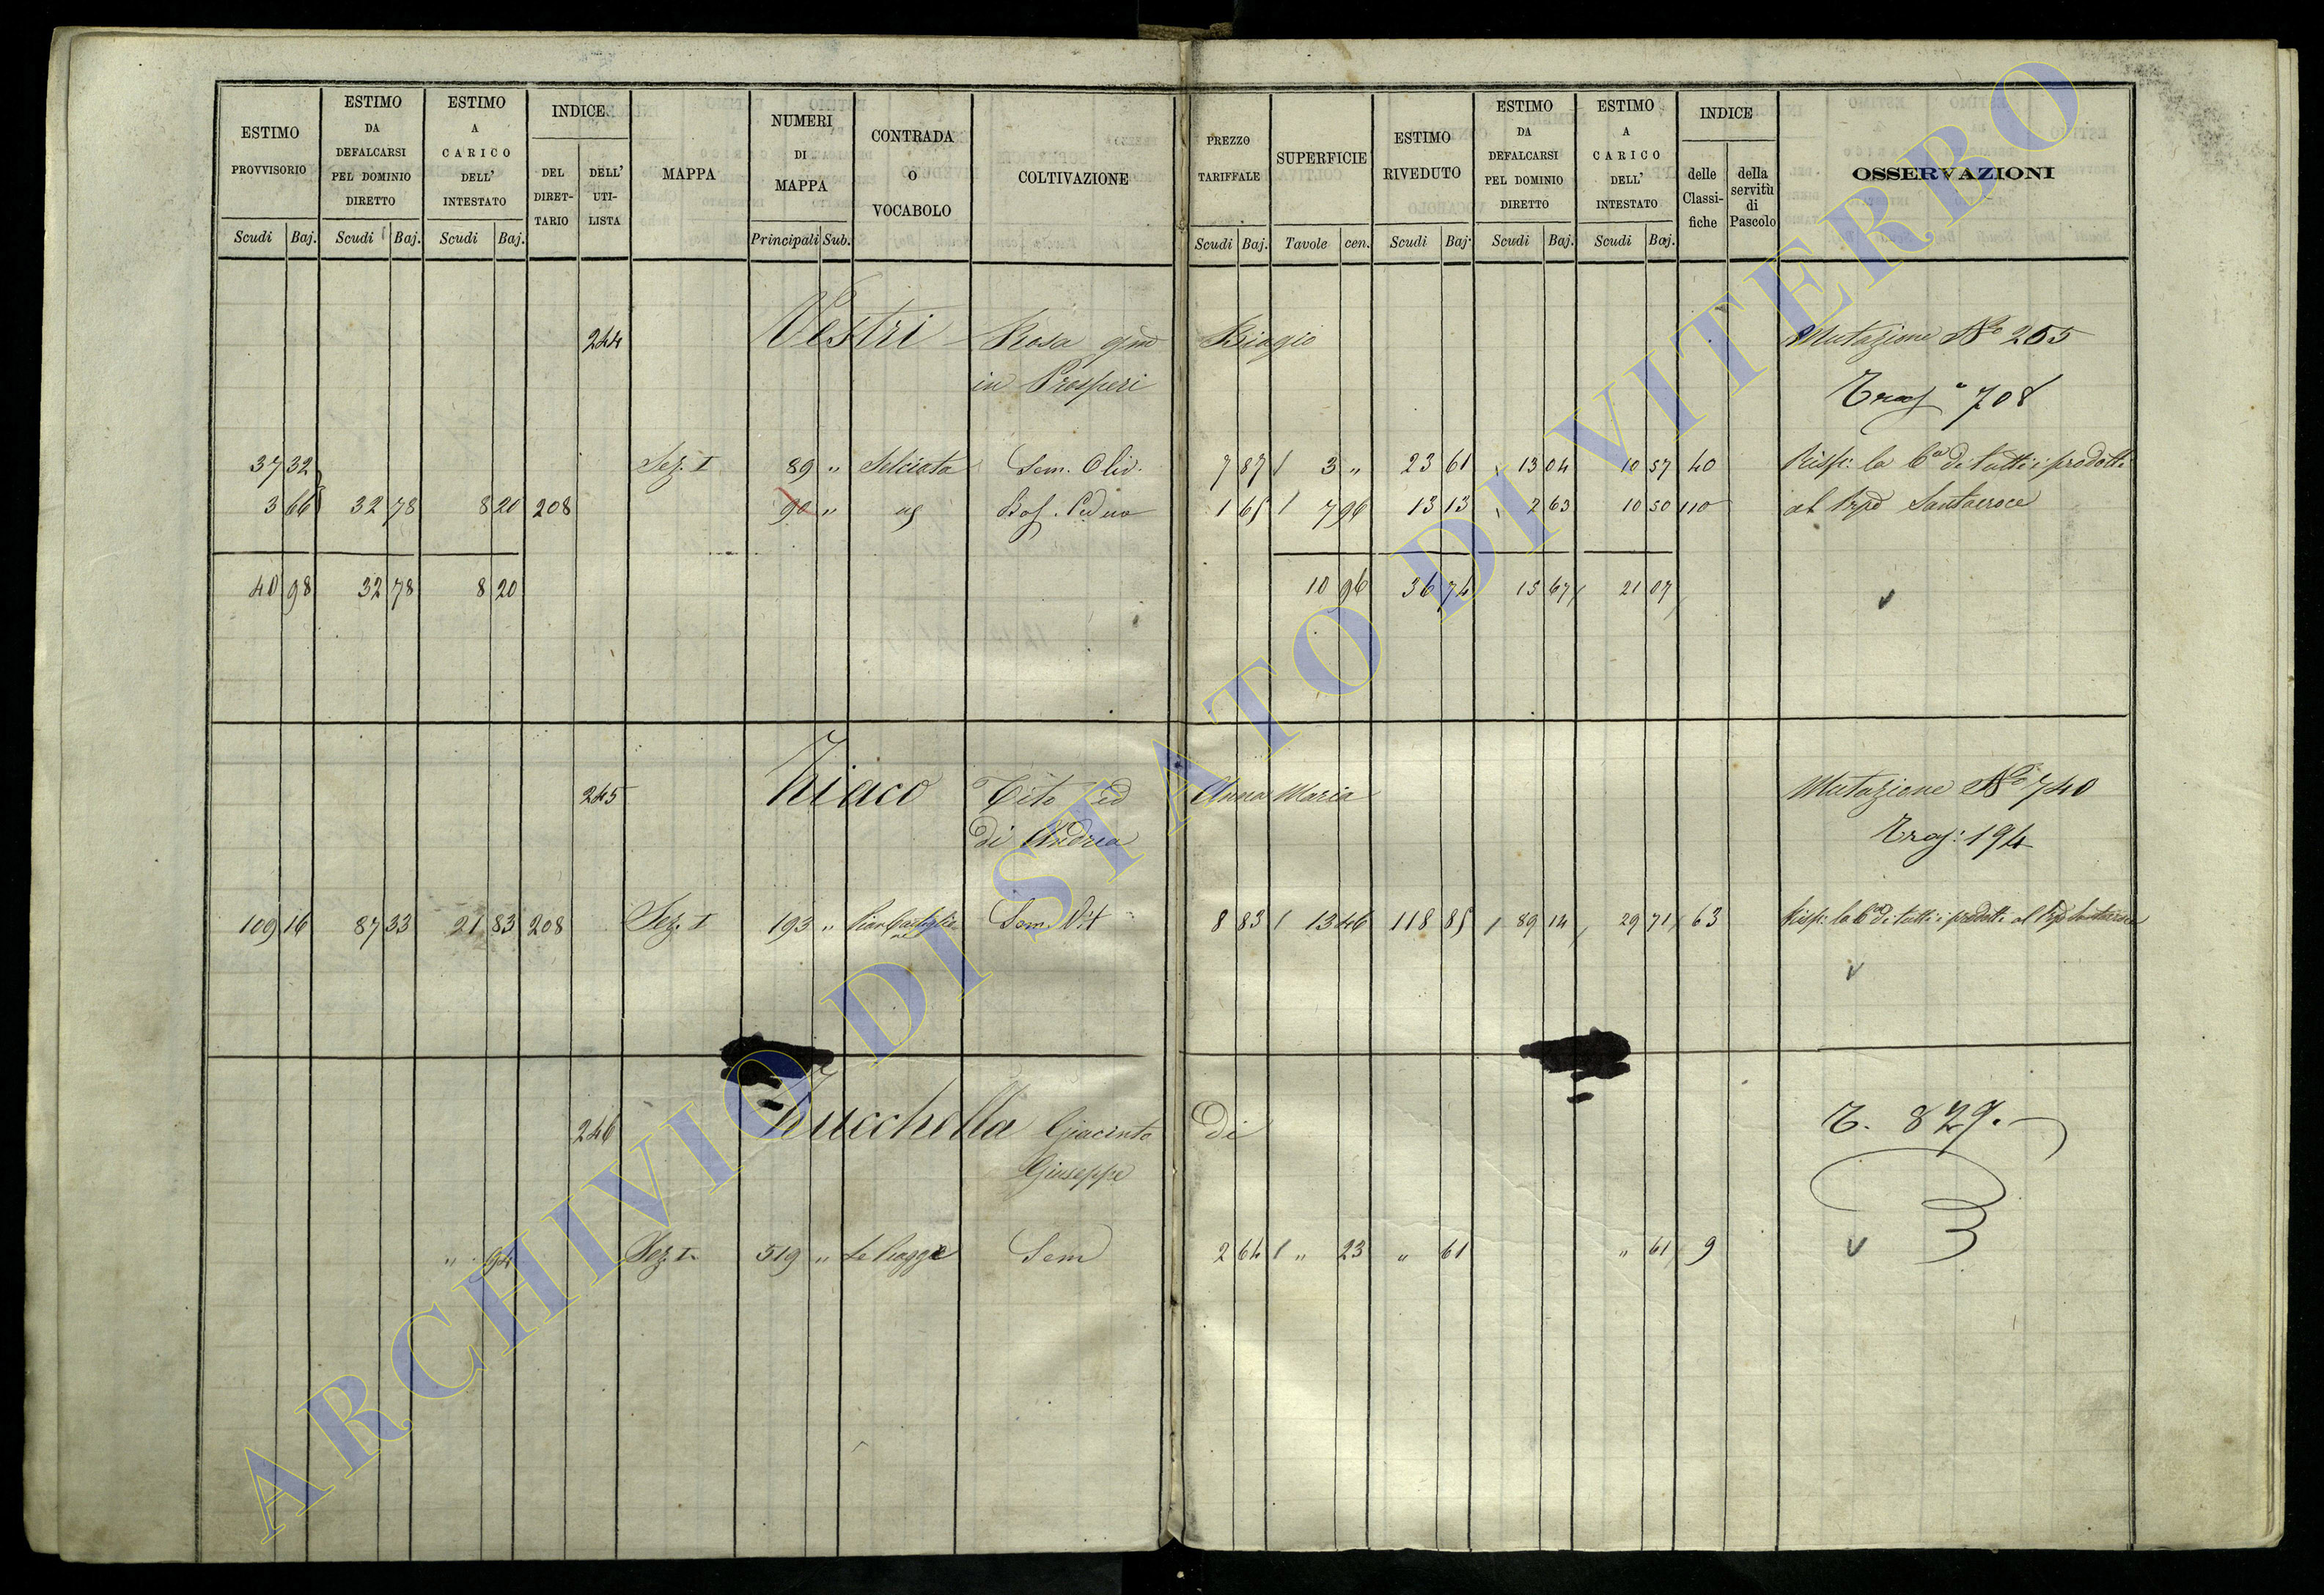 ESTIMO PROVVISORIO
ESTIMO DA DEFALCARSI PEL DOMINIO DIRETTO
ESTIMO A CARICO DELL' INTESTATO
INDICE
DEL DIRET-TARIO
DELL' UTI-LISTA
MAPPA
NUMERI DI MAPPA
CONTRADA O VOCABOLO
COLTIVAZIONE
PREZZO TARIFFALE
SUPERFICIE
ESTIMO RIVEDUTO
ESTIMO DA DEFALCARSI PEL DOMINIO DIRETTO
ESTIMO A CARICO DELL' INTESTATO
INDICE
delle Classi-fiche
della servitù di Pascolo
OSSERVAZIONI
Scudi Baj. Scudi Baj. Scudi Baj. Principali Sub. Scudi Baj. Tavole cen. Scudi Baj. Scudi Baj. Scudi Baj.
244 Vestri Rosa qm Biagio Mutazione No 265
in Prosperi 708
37 32 Sez. I 89 " Selciata Sem. Oliv. 7 87 3 " 23 61 13 04 10 57 40 Risp: la 6a di tutti i prodotti
3 66 32 78 8 20 208 90 " Bos. Ceduo 1 65 7 96 13 13 2 63 10 50 110 al Santacroce
40 98 32 78 8 20 10 96 36 74 15 67 21 07
245 Ziaco Tito ed Anna Maria Mutazione No 740
di Andrea Tras: 194
109 16 87 33 21 83 208 Sez. I 193 " Sem. Vit 8 83 13 46 118 85 89 14 29 71 63 Risp: la 6a di tutti i prodotti al Santacroce
246 Zucchella Giacinto Di T. 827.
Giuseppe
" 94 Sez. I 519 " Le Piagge Sem 2 64 " 23 " 61 " 61 9
ARCHIVIO DI STATO DI VITERBO